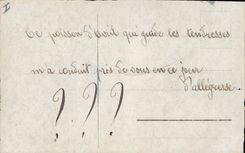 I
Ce poisson d'avril qui guide les tendresses
m'a conduit près de vous en ce jour
d'allégresse
? ? ?